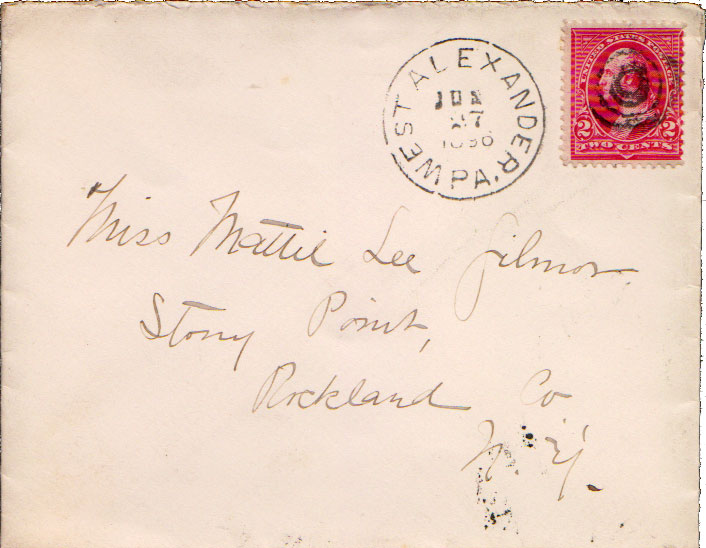 WEST ALEXANDER, PA.
27
UNITED STATES POSTAGE
2 2
TWO CENTS
Miss Mattie Lee Gilmor
Stony Point,
Rockland Co
N. Y.